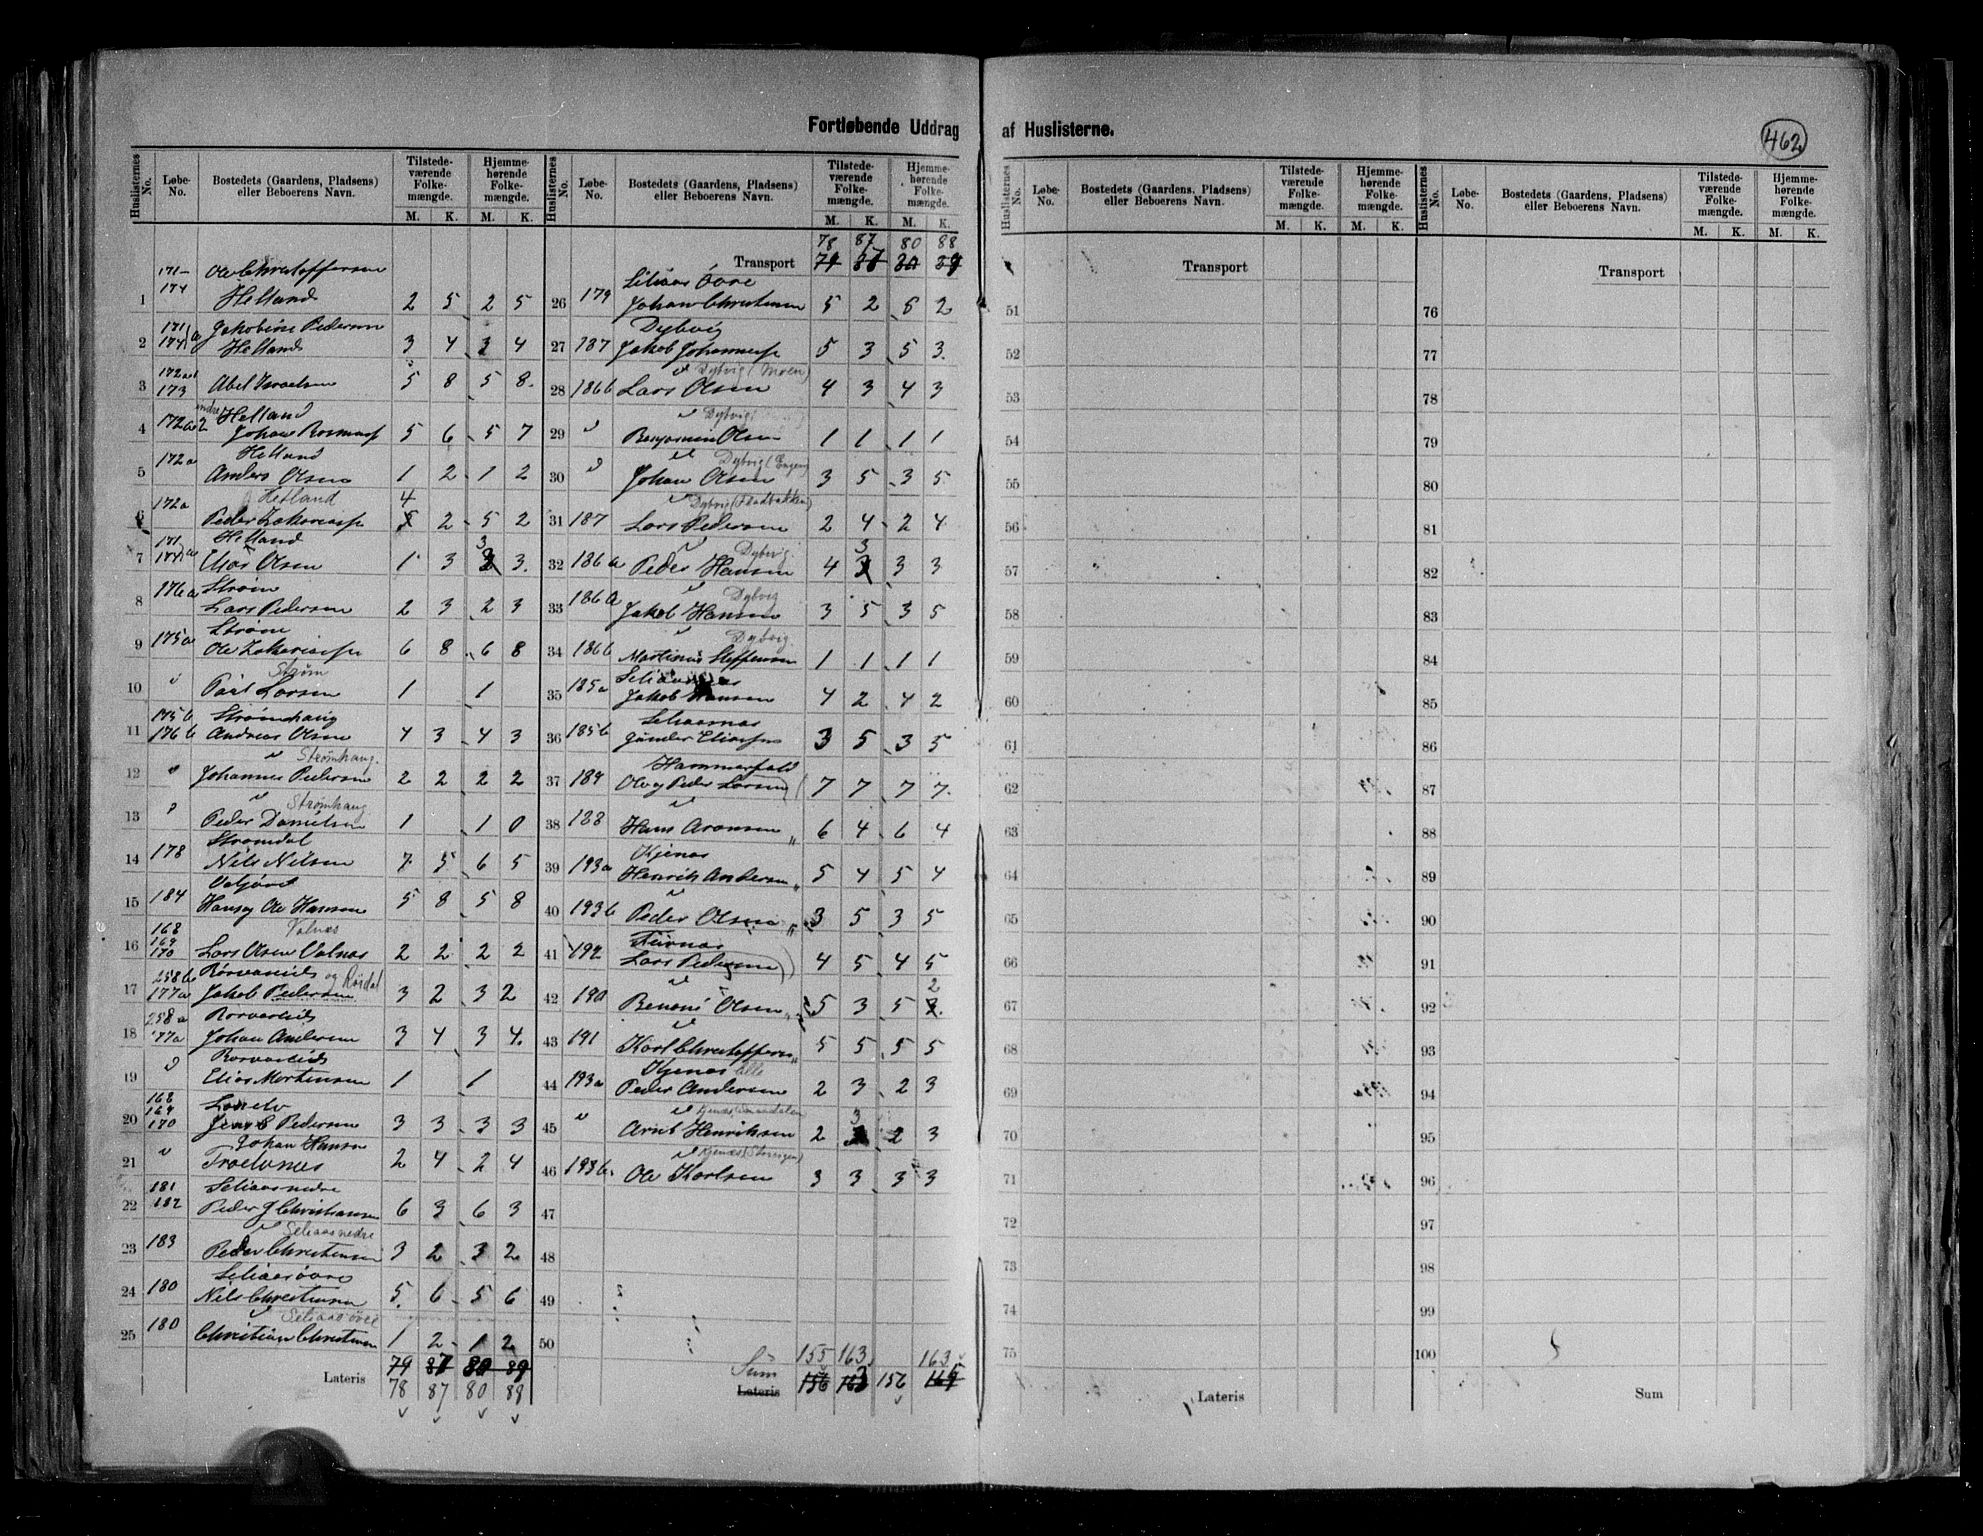 Fortløbende Uddrag af Huslisterne.
462
Huslisternes No. Løbe-No. Bostedets (Gaardens, Pladsens) eller Beboerens Navn. Tilstedeværende Folkemængde. M. K. Hjemmehørende Folkemængde. M. K.
171- Ole Christoffersen
1 174 Helland 2 5 2 5
171 Jakobine Pedersen
2 174 a Helland 3 4 3 4
172
3 173 Abel Israelsen 5 8 5 8.
Helland
4 172 Johan 5 6 5 7
Helland
5 172a Anders Olsen 1 2 1 2
Helland 4
6 172a Peder Zakariasse 5 2 5 2
171 Helland 3
7 174 a Olsen 1 3 3 3.
Strøm
8 176a Lars Pedersen 2 3 2 3
Strøm
9 175a Ole Zakariasse 6 8 6 8
Strøm
10 " Larsen 1 1
175b Strømhaug
11 176b Andreas Olsen 4 3 4 3
" Strømhaug.
12 " Johannes Pedersen 2 2 2 2
" Strømhaug
13 " Peder Danielsen 1 1 0
Strømdal
14 178 Nils Nilsen 7 5 6 5
15 184 Hans og Ole Hansen 5 8 5 8
168 Valnes
169
16 170 Lars Olsen Valnes 2 2 2 2
258b og
17 177a Jakob Pedersen 3 2 3 2
258a
18 177a Johan Andersen 3 4 3 4.
19 " Elias Mortensen 1 1
168
169
20 170 Pedersen 3 3 3 3
Johan Hansen
21 " 2 4 2 4
181 Seliaas nedre
22 182 Peder J Christiansen 6 3 6 3
" Seliaas nedre
23 183 Peder Christensen 3 2 3 2
Seliaas övre
24 180 Nils Christensen 5 6 5 6
" Seliaas övre
25 180 Christian Christensen 1 2 1 2
79 87 80 89
Lateris 78 87 80 88
Huslisternes No. Løbe-No. Bostedets (Gaardens, Pladsens) eller Beboerens Navn. Tilstedeværende Folkemængde. M. K. Hjemmehørende Folkemængde. M. K.
78 87 80 88
Transport 79 87 80 89
Seliaas Övre
26 179 Johan Christensen 5 2 5 2
Dybvig
27 187 Jakob Johannesse 5 3 5 3.
" Dybvig (Moen)
28 186b Lars Olsen 4 3 4 3
" Dybvig
29 " Benjamin Olsen 1 1 1 1
" Dybvig (Engen)
30 " Johan Olsen 3 5 3 5
" Dybvig (Fladbakken)
31 187 Lars Pedersen 2 4 2 4
" Dybvig 3
32 186a Peder Hansen 4 3 3
" Dybvig
33 186a Jakob Hansen 3 5 3 5
" Dybvig
34 186b Martinus Steffensen 1 1 1 1
35 185a Jakob Hansen 4 2 4 2
Seliaasnes
36 185b 3 5 3 5
Hammerfald
37 189 Ole og Peder Larsen 7 7 7 7.
"
38 188 Hans Aronsen " 6 4 6 4
Kjenes
39 193a Henrik Andersen " 5 4 5 4
"
40 193b Peder Olsen " 3 5 3 5
41 192 Lars Pedersen 4 5 4 5
" 2
42 190 Benoni Olsen " 5 3 5
"
43 191 Karl Christoffersen " 5 5 5 5
Kjenes
44 193a Peder Andersen 2 3 2 3
" Kjenes 3
45 " Arnt Henriksen 2 2 3
" Kjenes (Storengen)
46 193b. Ole Karlsen 3 3 3 3
47
48
49
50
155 163 163
Sum
Lateris 156 163 156 165
Huslisternes No. Løbe-No. Bostedets (Gaardens, Pladsens) eller Beboerens Navn. Tilstedeværende Folkemængde. M. K. Hjemmehørende Folkemængde. M. K.
Transport
51
52
53
54
55
56
57
58
59
60
61
62
63
64
65
66
67
68
69
70
71
72
73
74
75
Lateris
Huslisternes No. Løbe-No. Bostedets (Gaardens, Pladsens) eller Beboerens Navn. Tilstedeværende Folkemængde. M. K. Hjemmehørende Folkemængde. M. K.
Transport
76
77
78
79
80
81
82
83
84
85
86
87
88
89
90
91
92
93
94
95
96
97
98
99
100
Sum